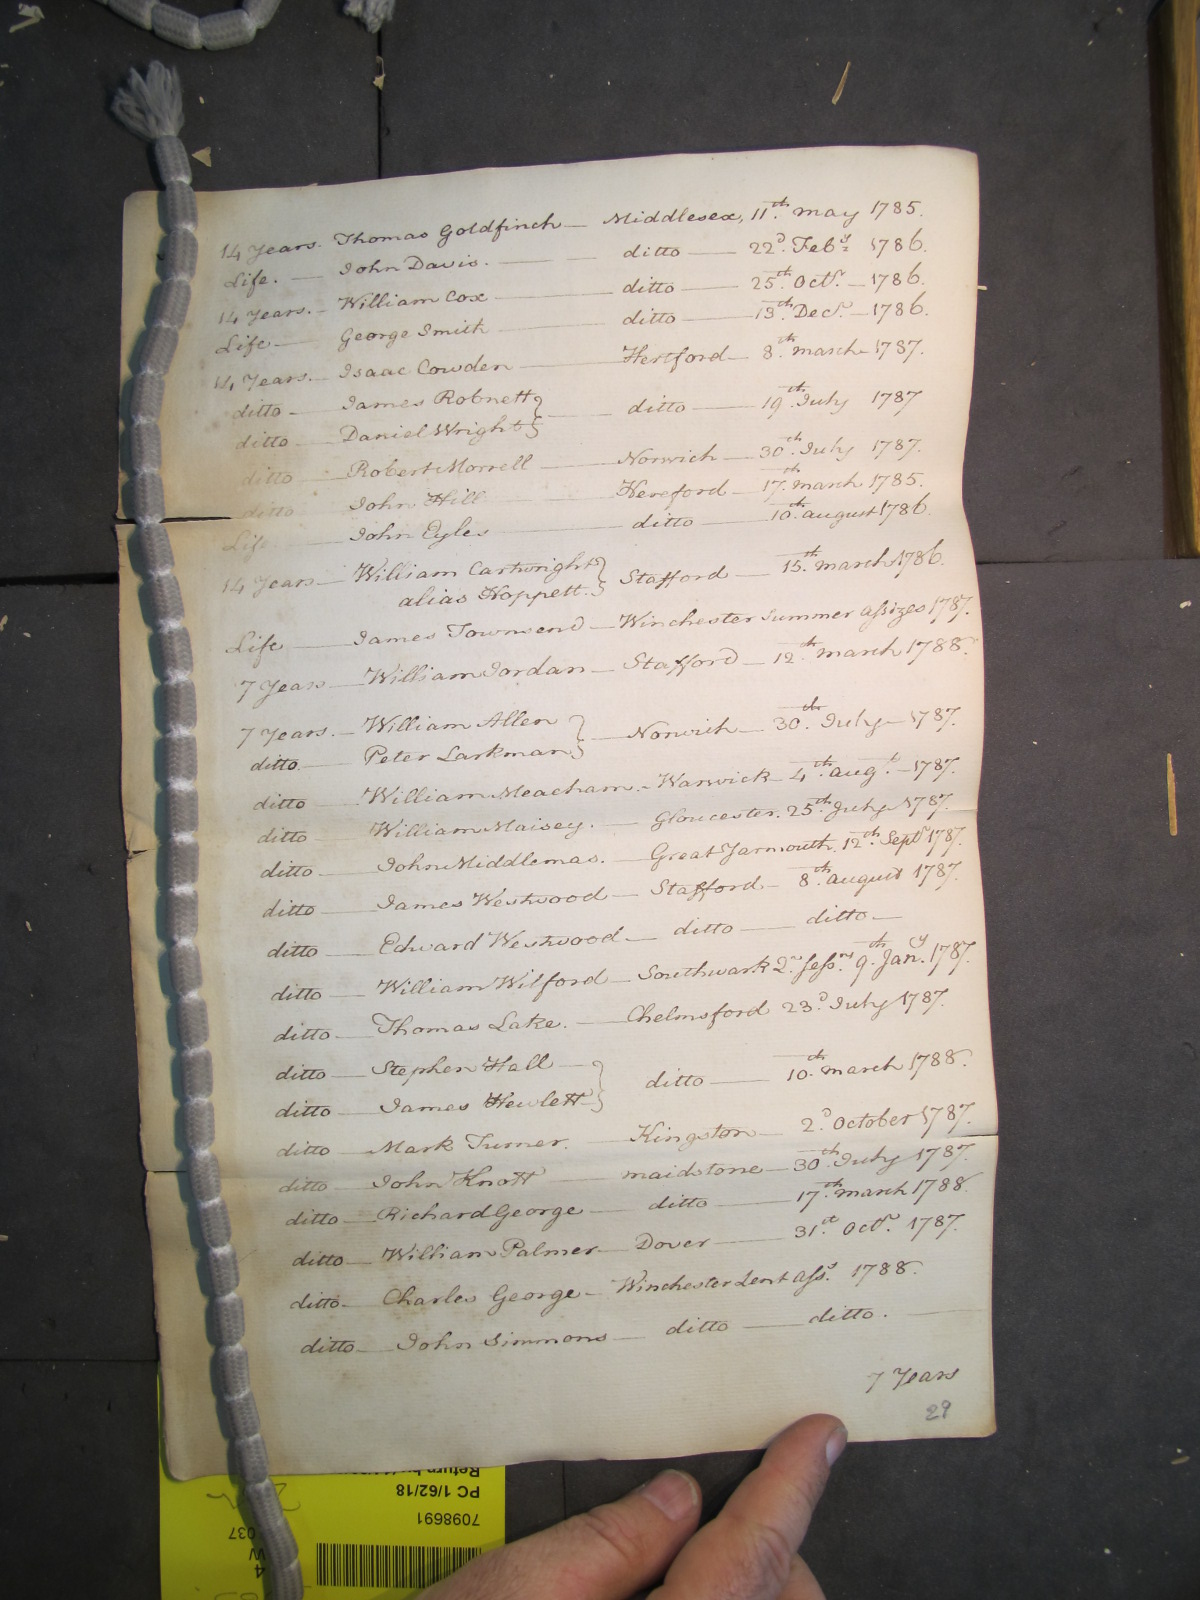 14 Years. Thomas Goldfinch — Middlesex, 11th. may 1785.
Life. — John Davis. — ditto — 22d. Feby. 1786.
14 Years. — William Cox — ditto — 25th. Octr. — 1786.
Life — George Smith — ditto — 13th. Decr. — 1786.
14 Years. — Isaac Cowden — Hertford — 8th. march 1787.
ditto — James Robnett } — ditto — 19th. July 1787
ditto — Daniel Wright }
ditto — Robert Morrell — Norwich — 30th. July 1787.
ditto — John Hill — Hereford — 17th. march 1785.
Life — John Eyles — ditto — 10th. august 1786.
14 Years — William Cartwright } Stafford — 15th. march 1786.
alias Hoppett. }
Life — James Townsend — Winchester Summer assizes 1787.
7 Years — William Jordan — Stafford — 12th. march 1788.
7 Years. — William Allen } — Norwich — 30th. July — 1787.
ditto — Peter Larkman }
ditto — William Meacham. — Warwick — 4th. augt. — 1787.
ditto — William Maisey. — Gloucester. 25th. July 1787.
ditto — John Middlemas. — Great Yarmouth. 12th. Septr. 1787.
ditto — James Westwood — Stafford — 8th. august 1787.
ditto — Edward Westwood — ditto — ditto —
ditto — William Wilford — Southwark 2nd. Sessns. 9th. Jany. 1787.
ditto — Thomas Lake. — Chelmsford 23d. July 1787.
ditto — Stephen Hall — } ditto — 10th. march 1788.
ditto — James Hewlett }
ditto — Mark Turner. — Kingston — 2d. October 1787.
ditto — John Knott — maidstone — 30th. July 1787.
ditto — Richard George — ditto — 17th. march 1788.
ditto — William Palmer — Dover — 31st. Octr. 1787.
ditto — Charles George — Winchester Lent Asss. 1788.
ditto — John Simmons — ditto — ditto.
7 Years
29
PC 1/62/18
7098691
037
W
4